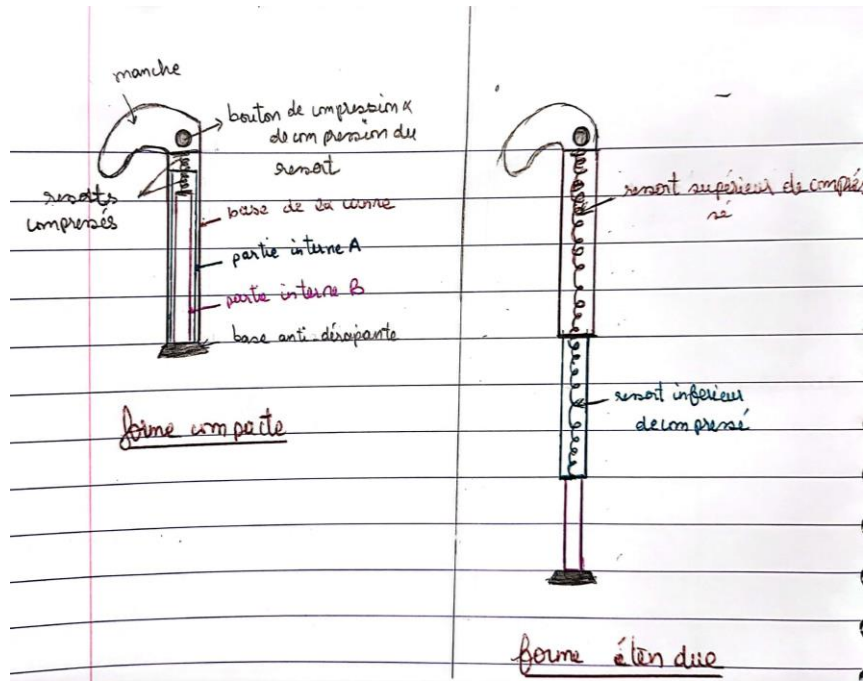 manche
bouton de compression &
de compression du
ressort
ressorts
compressés
base de la canne
partie interne A
partie interne B
base anti-dérapante
forme compacte
ressort supérieur de compres
sé
ressort inférieur
decompressé
forme étendue